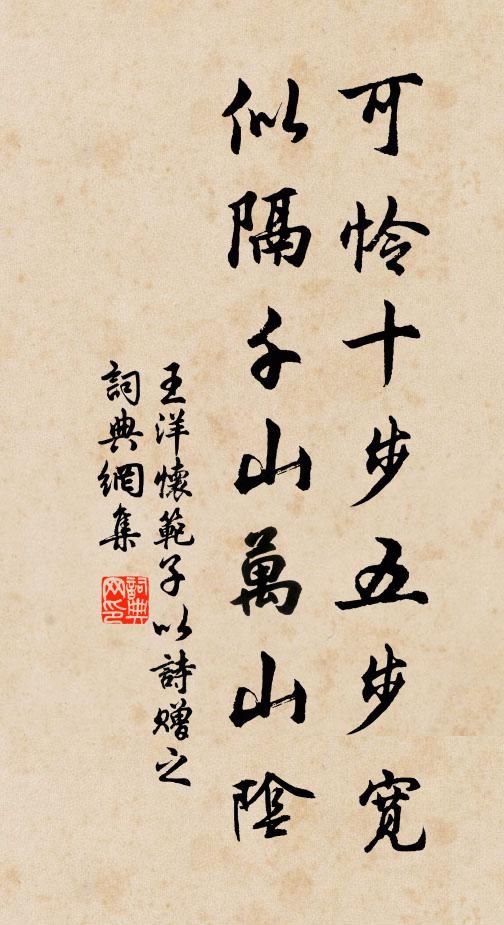 可怜十步五步寬
似隔千山萬山陰
王洋懷範子以詩赠之
詞典網集
詞典網印